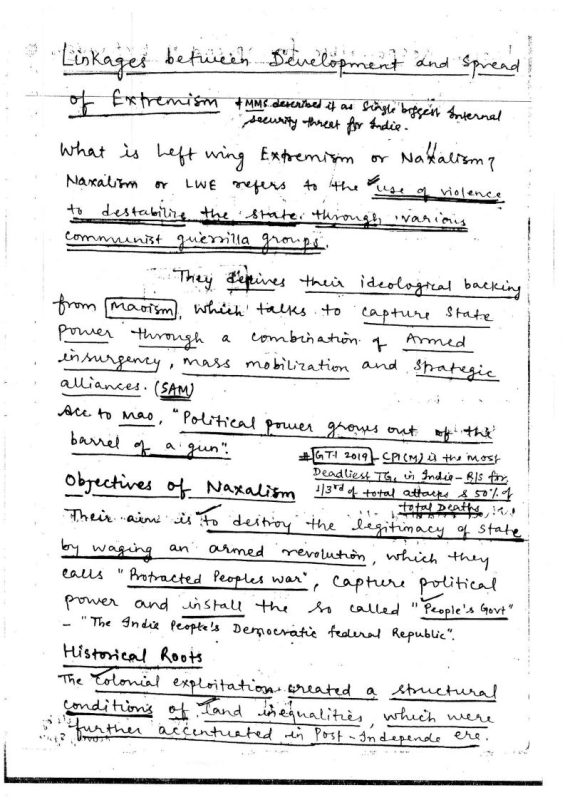 Linkages between Development and Spread
of Extremism # MMS described it as Single biggest Internal
security threat for India.
What is Left wing Extremism or Naxalism?
Naxalism or LWE refers to the use of violence
to destabilize the state through various
communist guerrilla groups.
They derives their ideological backing
from Maoism, which talks to capture State
power through a combination of Armed
insurgency, mass mobilization and strategic
alliances. (SAM)
Acc to Mao, "Political power grows out of the
barrel of a gun".
# GTI 2019 - CPI(M) is the most
Deadliest TG, in India - R/S for
1/3rd of total attacks & 50% of
total Deaths
Objectives of Naxalism
Their aim is to destroy the legitimacy of State
by waging an armed revolution, which they
calls "Protracted Peoples war", capture political
power and install the so called "People's Govt"
- "The India People's Democratic federal Republic".
Historical Roots
The Colonial exploitation created a structural
conditions of land inequalities, which were
further accentuated in Post-Independe era.